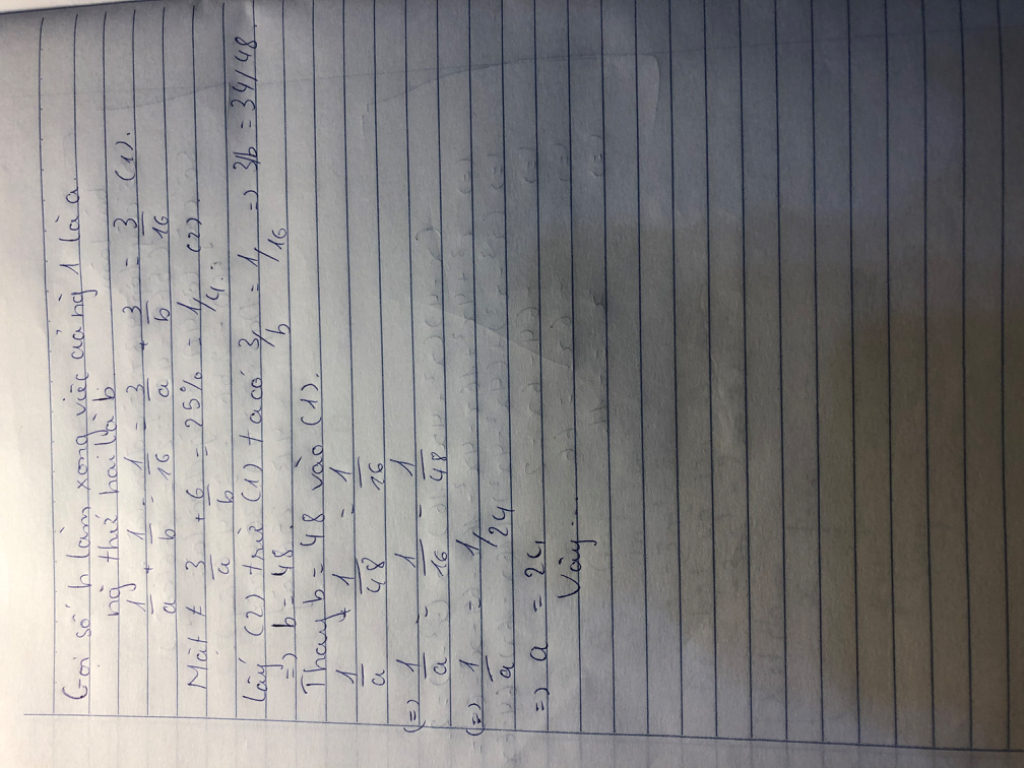 Gọi số h làm xong việc của ng 1 là a
ng thứ hai là b
1/a + 1/b = 1/16 = 3/a + 3/b = 3/16 (1).
Mặt ≠ 3/a + 6/b = 25% = 1/4 (2)
Lấy (2) trừ (1) ta có 3/b = 1/16 => 3/b = 34/48
=> b = 48
Thay b = 48 vào (1).
1/a + 1/48 = 1/16
(=) 1/a = 1/16 - 1/48
(=) 1/a = 1/24
=> a = 24
Vậy...